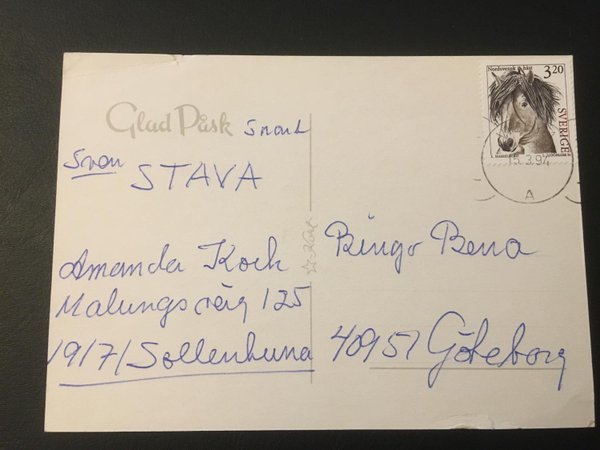 Glad Påsk Snart
Svar
STAVA
Amanda Kock
Malungsväg 125
19171 Sollentuna
Bingo Bena
40951 Göteborg
Nordsvensk häst
3.20
SVERIGE
15.3.94
A